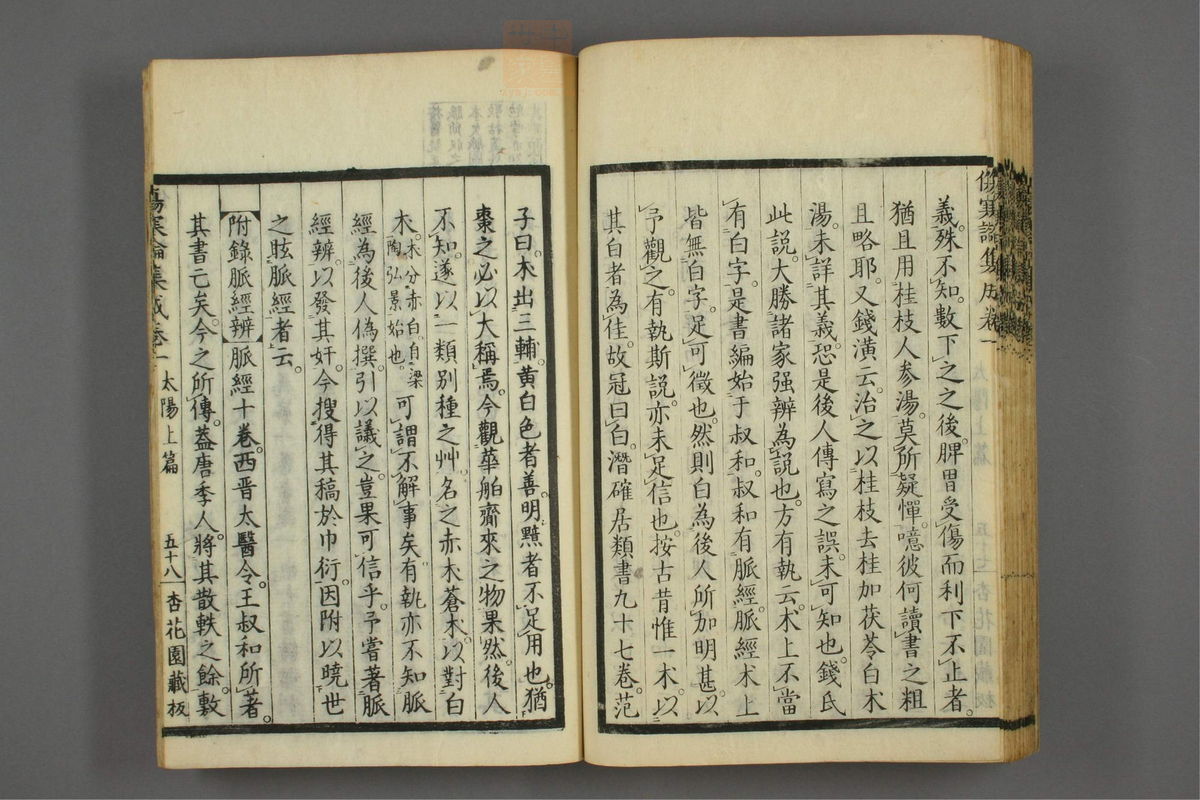 傷寒論集成卷一
義。殊不知。數下之之後。脾胃受傷而利下不止者。
猶且用桂枝人參湯。莫所疑憚。噫彼何讀書之粗
且略耶。又錢潢云。治之以桂枝去桂加茯苓白朮
湯。未詳其義。恐是後人傳寫之誤。未可知也。錢氏
此說。大勝諸家强辨為說也。方有執云。朮上不當
有白字。是書編始于叔和。叔和有脈經。脈經朮上
皆無白字。足可徵也。然則白為後人所加明甚。以
予觀之。有執斯說。亦未足信也。按古昔惟一朮。以
其白者為佳。故冠曰白。潛確居類書九十七卷。范
子曰。朮出三輔。黃白色者善。明黑者不足用也。猶
棗之必以大稱焉。今觀華舶齎來之物果然。後人
不知。遂以一類別種之艸。名之赤朮蒼朮。以對白
朮。朮分赤白。自梁陶弘景始也。可謂不解事矣。有執亦不知脈
經為後人偽撰。引以議之。豈果可信乎。予嘗著脈
經辨。以發其奸。今搜得其稿於巾衍。因附以曉世
之眩脈經者云。
附錄脈經辨 脈經十卷。西晋太醫令。王叔和所著。
其書亡矣。今之所傳。蓋唐季人。將其散軼之餘。敷
傷寒論集成卷一 太陽上篇 五十八 杏花園藏板